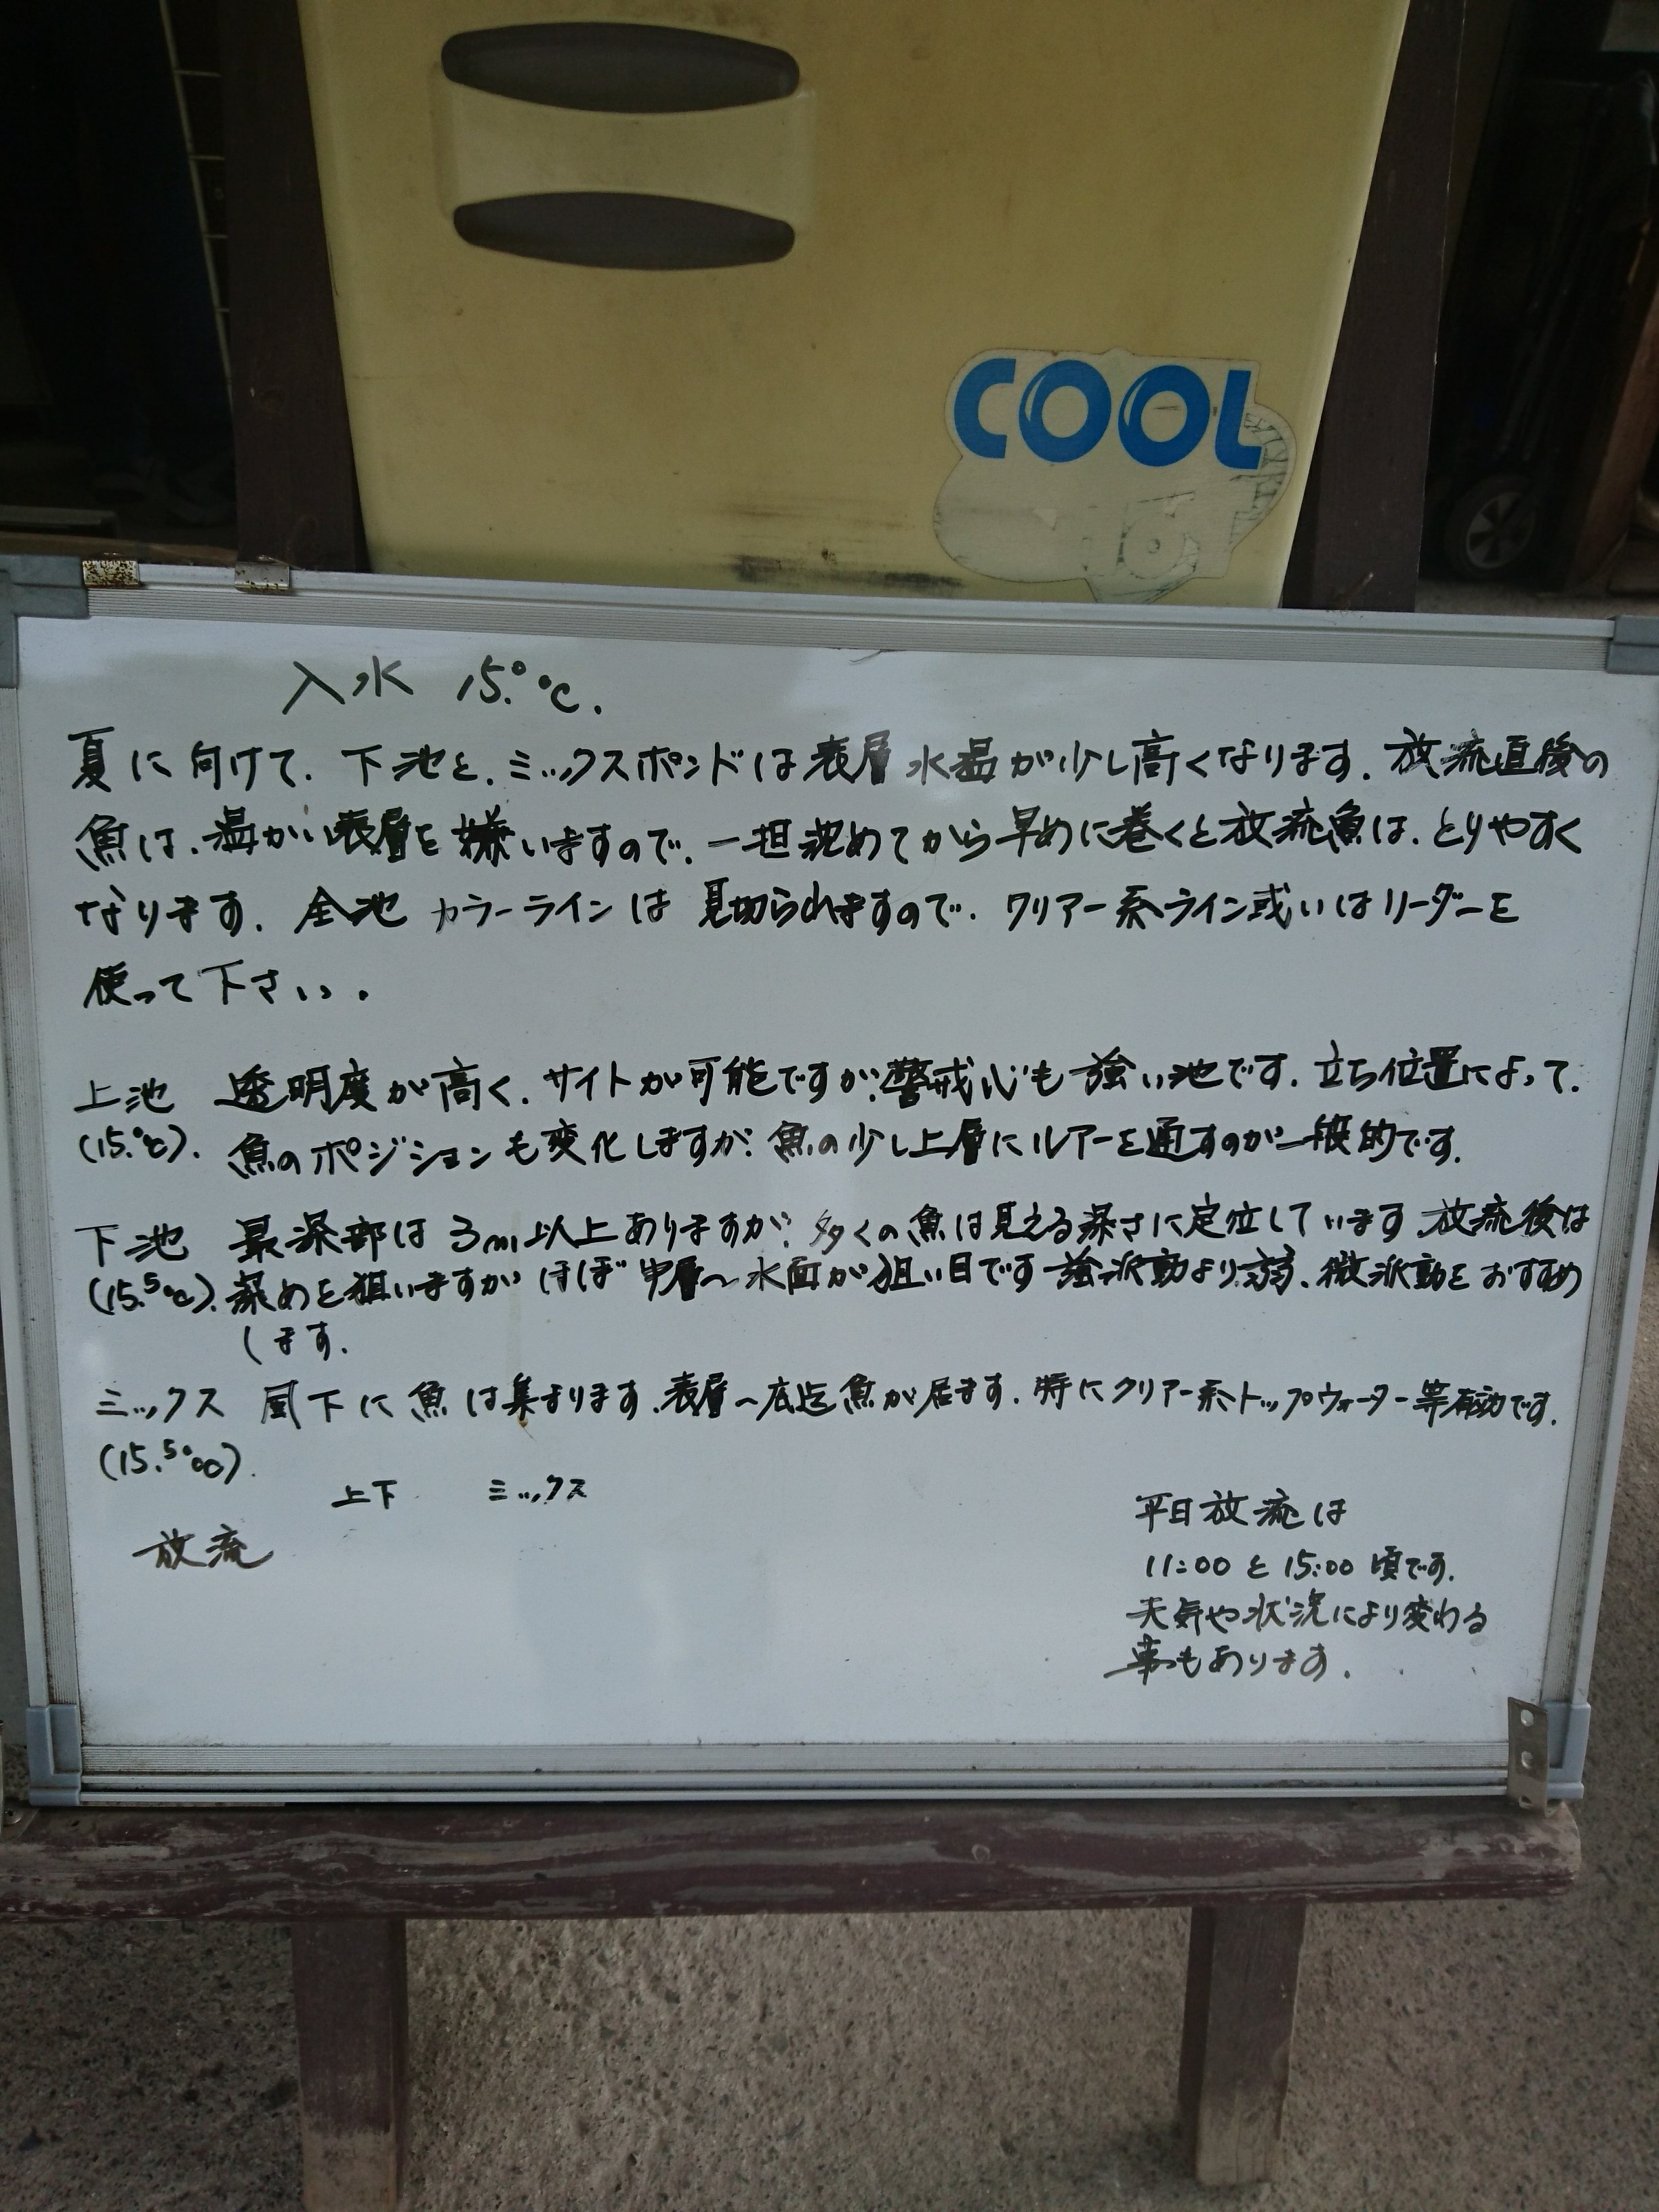 COOL
入水 15.°℃.
夏に向けて、下池と、ミックスポンドは表層水温が少し高くなります。放流直後の
魚は、温かい表層を嫌いますので、一担沈めてから早めに巻くと放流魚は、とりやすく
なります。全池 カラーラインは見切られますので、クリアー系ライン或いはリーダーを
使って下さい。
上池 透明度が高く、サイトが可能ですが、警戒心も強い池です。立ち位置によって、
(15.°℃). 魚のポジションも変化しますが、魚の少し上層にルアーを通すのが一般的です。
下池 最深部は3m以上ありますが、多くの魚は見える深さに定位しています。放流後は
(15.5℃). 深めを狙いますがほぼ中層~水面が狙い目です 強波動より弱、微波動をおすすめ
します。
ミックス 風下に魚は集まります。表層~底迄魚が居ます。特にクリアー系トップウォーター等有効です。
(15.5℃).
上下 ミックス
放流
平日放流は
11:00と15:00頃です。
天気や状況により変わる
事もあります。